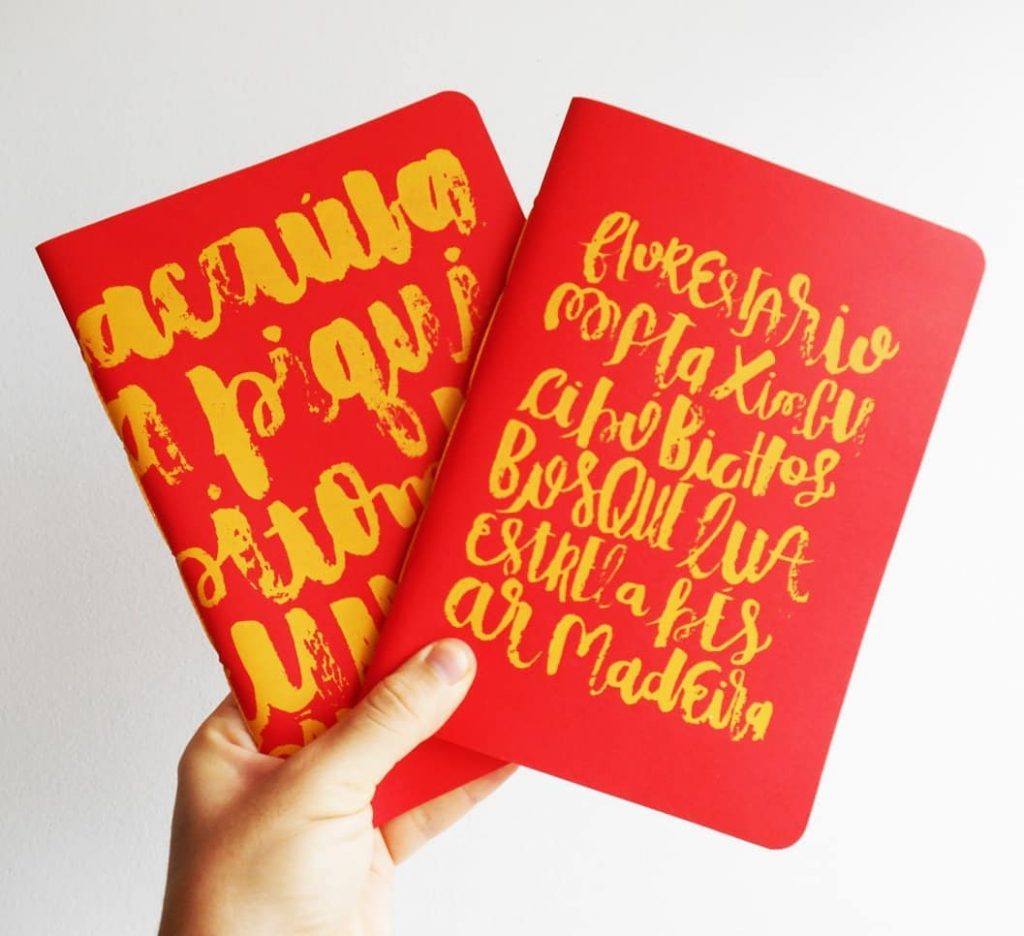 acaúba
a piqui
fLOREStARio
mata XinGU
cipó BicHos
BOSQUE LUA
EStRELa pés
ar MadEira